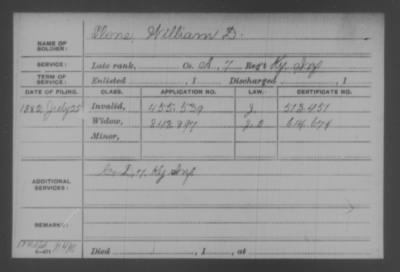 NAME OF SOLDIER: Clone, William D.
SERVICE: Late rank, Co. A, 7 Reg't Ky. Inf
TERM OF SERVICE: Enlisted , 1 Discharged , 1
DATE OF FILING. CLASS. APPLICATION NO. LAW. CERTIFICATE NO.
1882 July 25 Invalid, 455.539 J. 513.451
Widow, 842 897 614.674
Minor,
ADDITIONAL SERVICES: Co. I, 7, Ky Inf
REMARKS:
Died , 1 , at